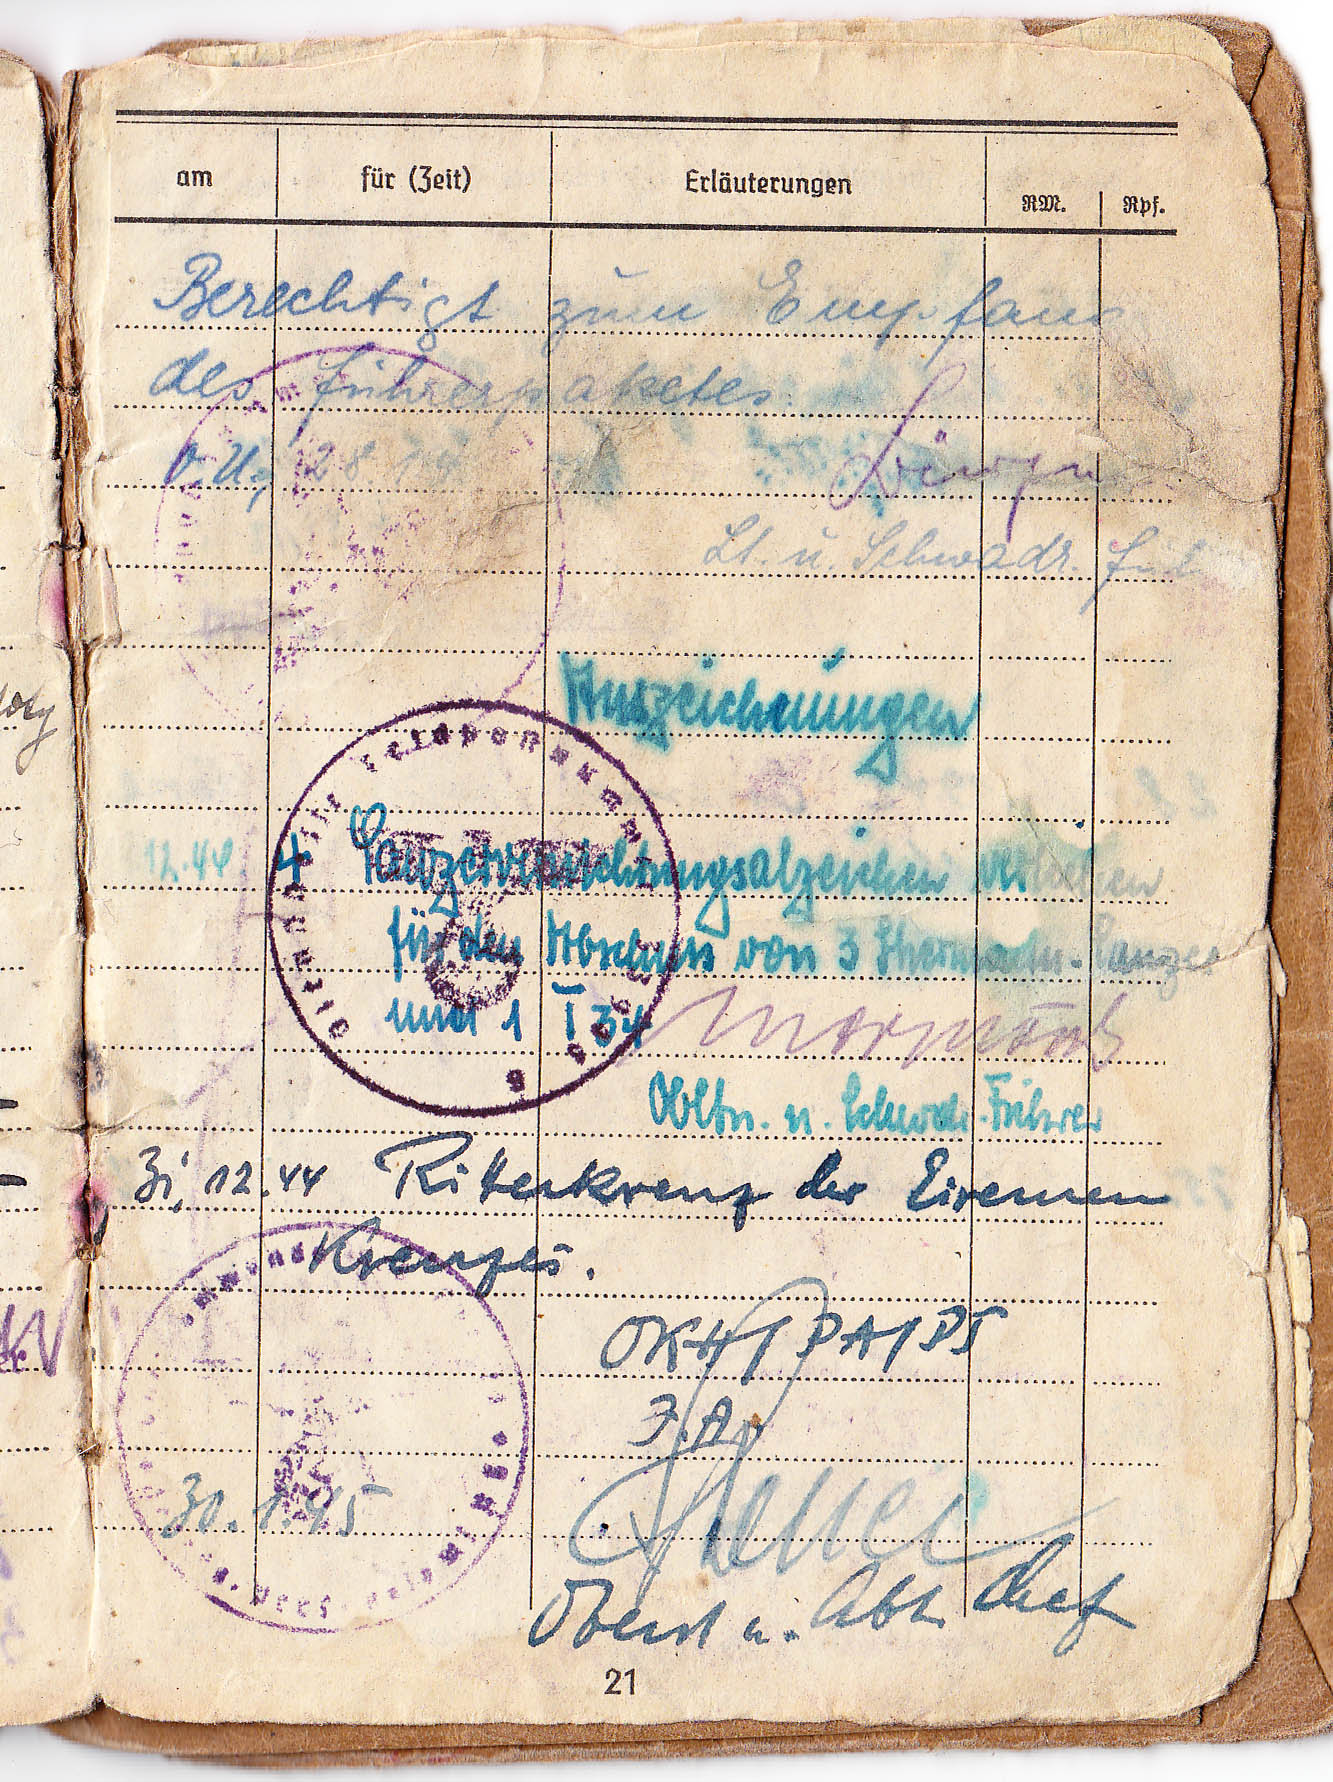 am für (Zeit) Erläuterungen RM. Rpf.
Berechtigt zum Empfang
des Führerpaketes.
O.U., 28
Lt. u. Schwadr. Füh
Auszeichnungen
Dienststelle Feldpostnummer
12.44 4 Panzervernichtungsabzeichen verliehen
für den Abschuss von 3 Sherman-Panzer
und 1 T 34
Obltn. u. Schwdr.-Führer
12.44 Ritterkreuz des Eisernen
Kreuzes.
OKH/PA/P5
I.A.
30.1.45
Oberst u. Abt. Chef
21